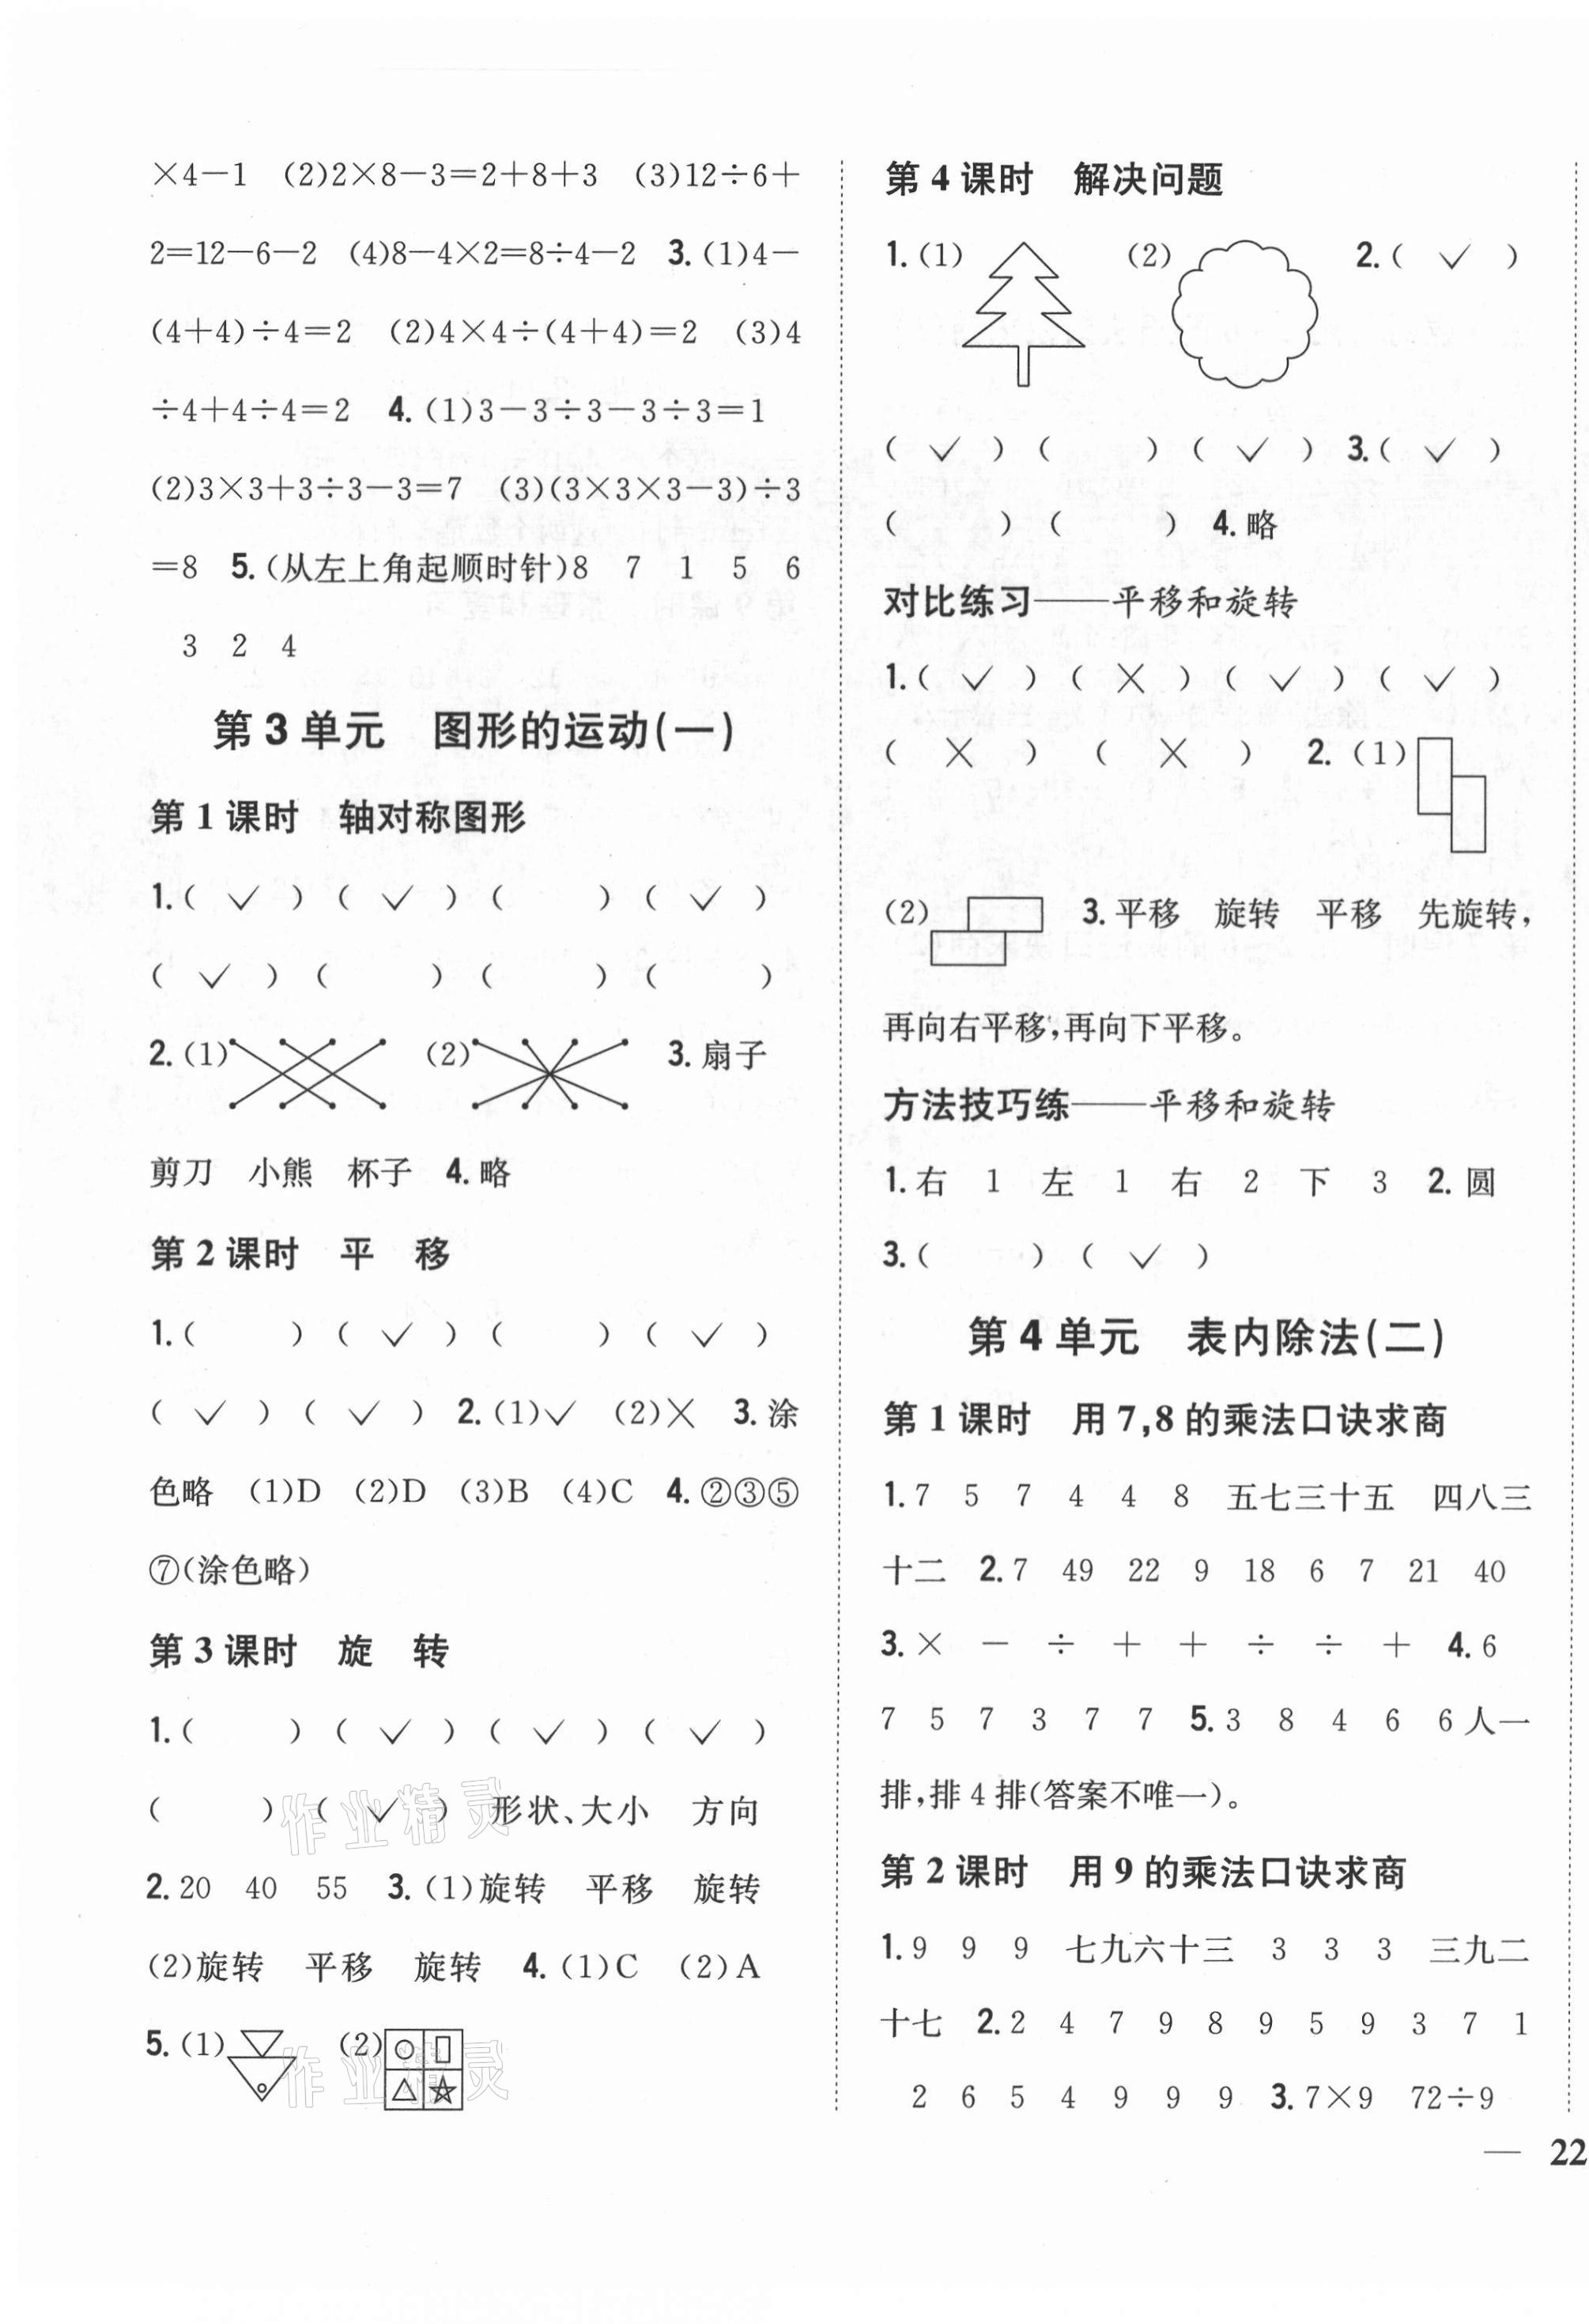 ×4－1　(2)2×8－3=2+8+3　(3)12÷6+
2=12－6－2　(4)8－4×2=8÷4－2　3.(1)4－
(4+4)÷4=2　(2)4×4÷(4+4)=2　(3)4
÷4+4÷4=2　4.(1)3－3÷3－3÷3=1
(2)3×3+3÷3－3=7　(3)(3×3×3－3)÷3
=8　5.(从左上角起顺时针)8　7　1　5　6
3　2　4
第3单元　图形的运动(一)
第1课时　轴对称图形
1.(　✓　)(　✓　)(　　)(　✓　)
(　✓　)(　　)(　　)(　　)
2.(1)　(2)　3.扇子
剪刀　小熊　杯子　4.略
第2课时　平　移
1.(　　)(　✓　)(　　)(　✓　)
(　✓　)(　✓　)　2.(1)✓　(2)×　3.涂
色略　(1)D　(2)D　(3)B　(4)C　4.②③⑤
⑦(涂色略)
第3课时　旋　转
1.(　　)(　✓　)(　✓　)(　✓　)
(　　)(　✓　)　形状、大小　方向
2.20　40　55　3.(1)旋转　平移　旋转
(2)旋转　平移　旋转　4.(1)C　(2)A
5.(1)　(2)
第4课时　解决问题
1.(1)　(2)　2.(　✓　)
(　✓　)(　　)(　✓　)　3.(　✓　)
(　　)(　　)　4.略
对比练习——平移和旋转
1.(　✓　)(　×　)(　✓　)(　✓　)
(　×　)(　×　)　2.(1)
(2)　3.平移　旋转　平移　先旋转，
再向右平移，再向下平移。
方法技巧练——平移和旋转
1.右　1　左　1　右　2　下　3　2.圆
3.(　　)(　✓　)
第4单元　表内除法(二)
第1课时　用7,8的乘法口诀求商
1.7　5　7　4　4　8　五七三十五　四八三
十二　2.7　49　22　9　18　6　7　21　40
3.×　－　÷　+　+　÷　÷　+　4.6
7　5　7　3　7　7　5.3　8　4　6　6人一
排，排4排(答案不唯一)。
第2课时　用9的乘法口诀求商
1.9　9　9　七九六十三　3　3　3　三九二
十七　2.2　4　7　9　8　9　5　9　3　7　1
2　6　5　4　9　9　9　3.7×9　72÷9
— 22
作业精灵
作业精灵